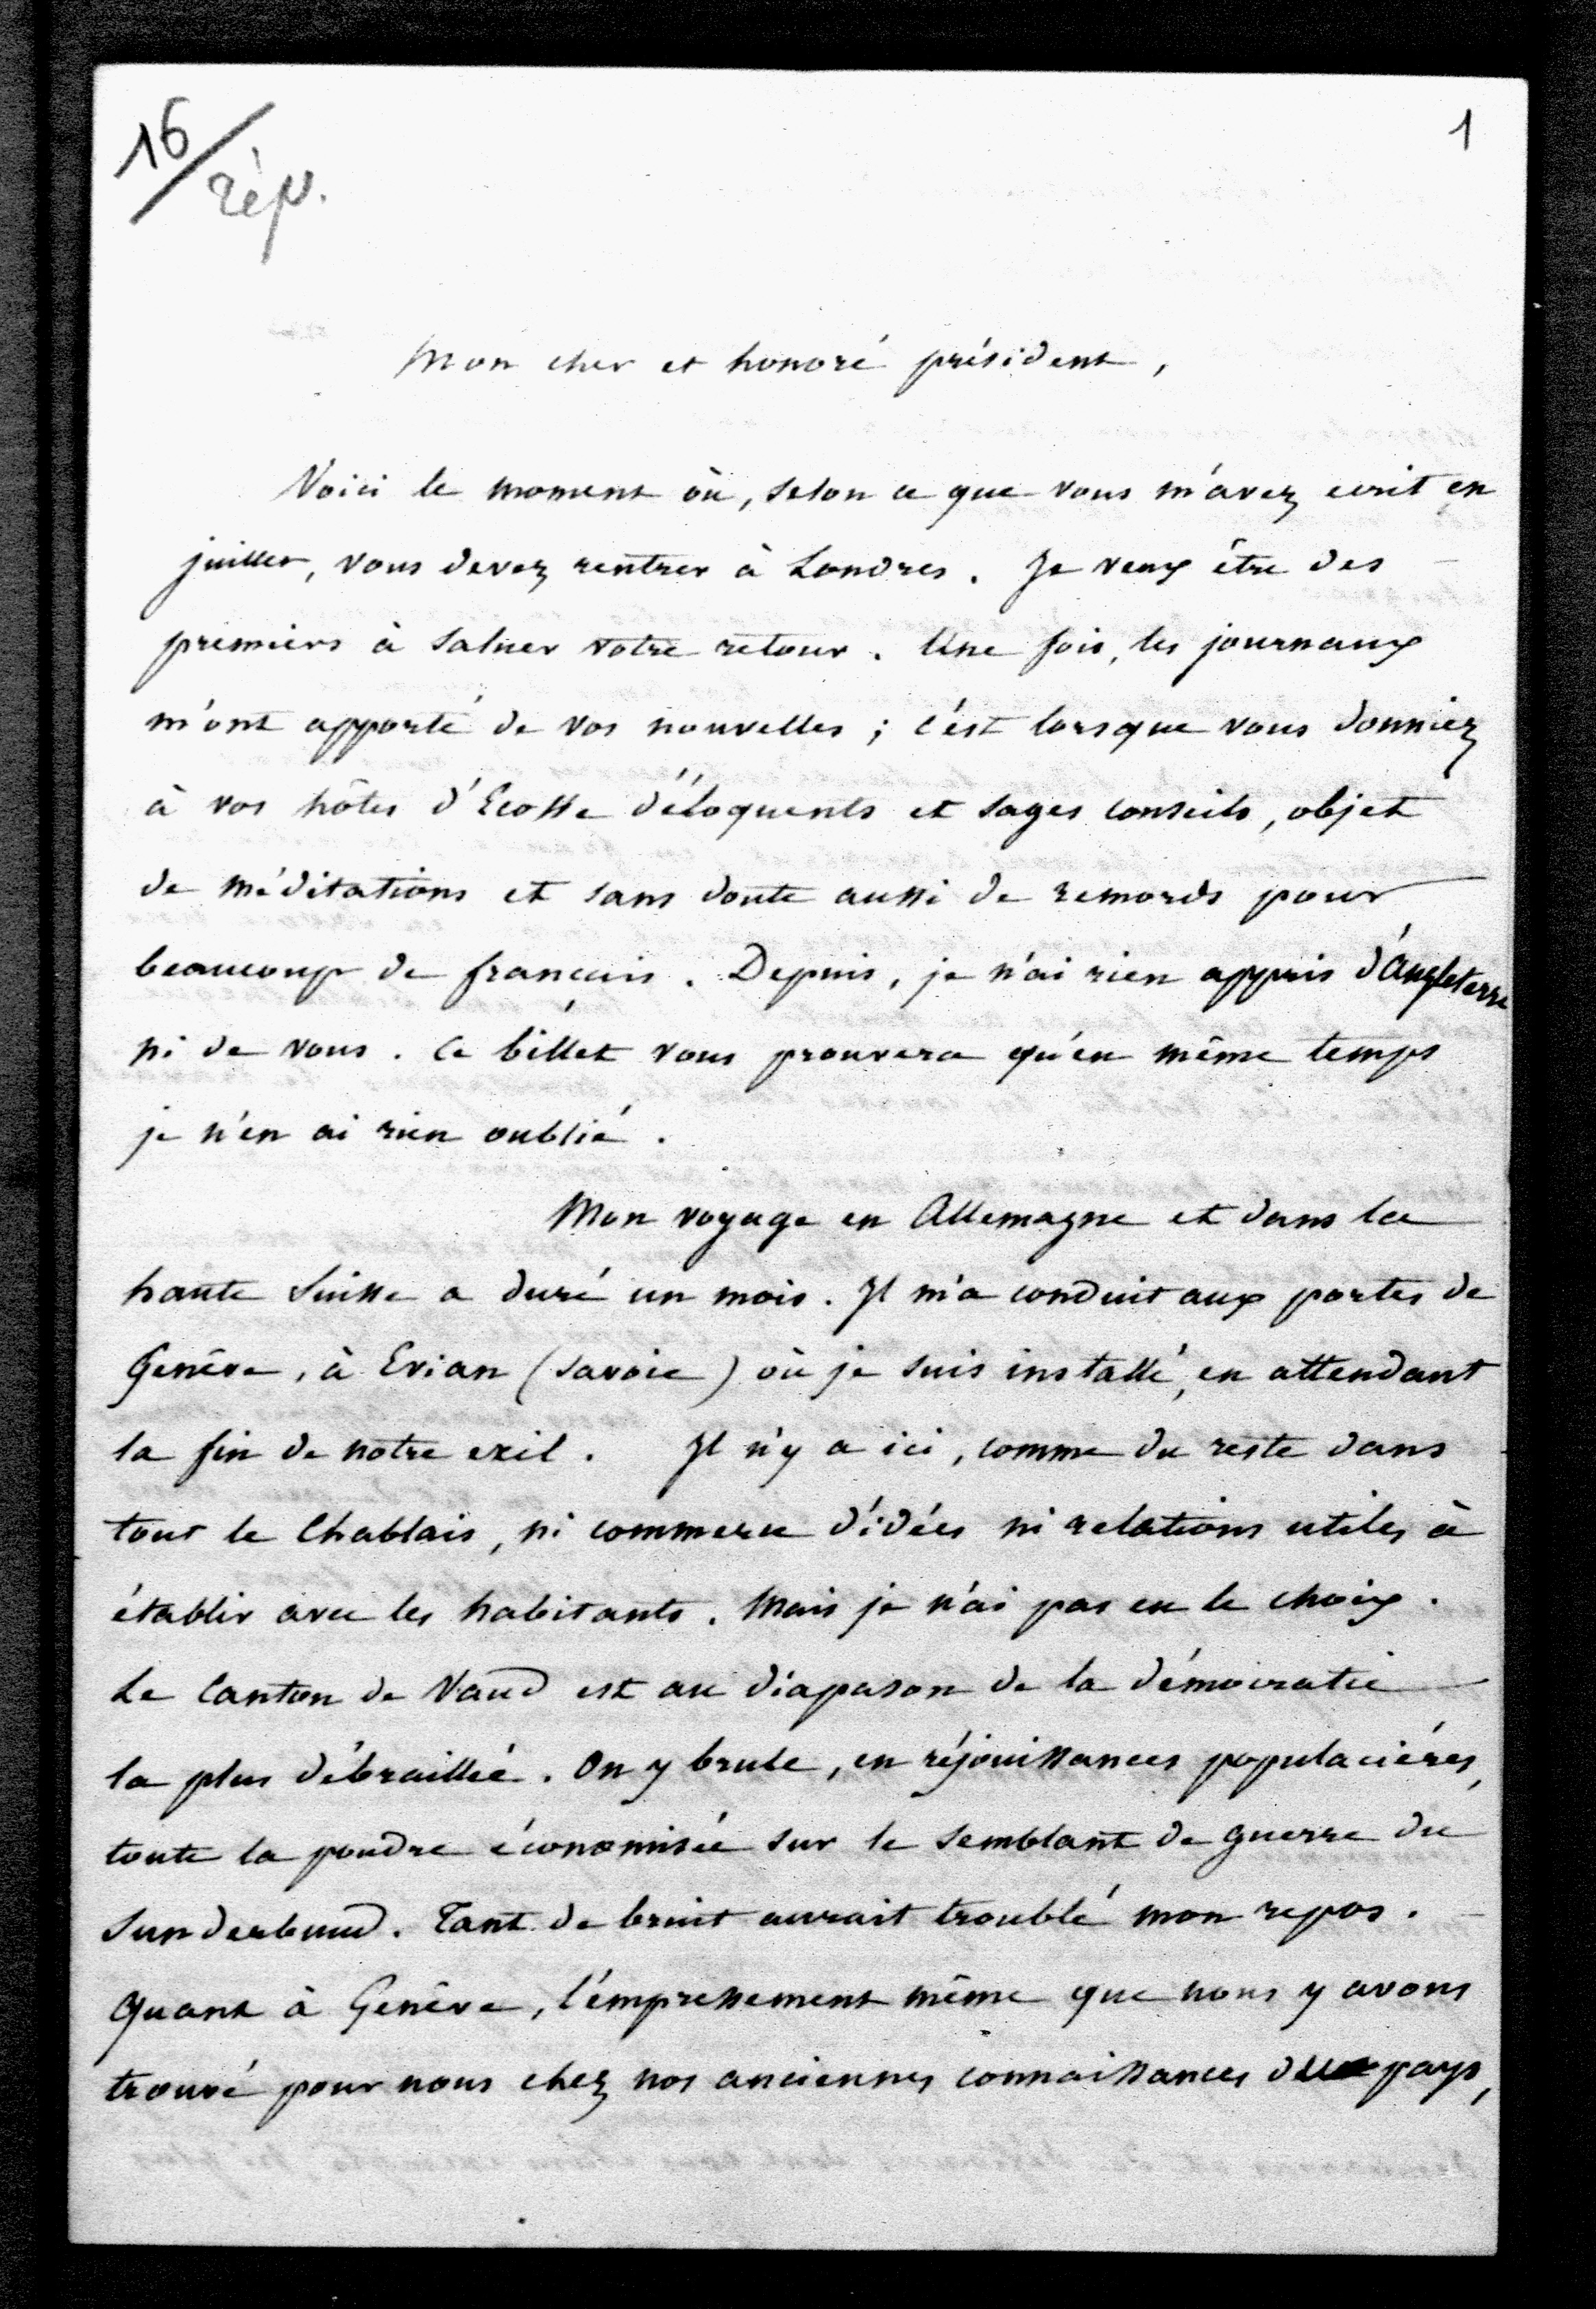 16/rép.
1
Mon cher et honoré président,
Voici le moment où, selon ce que vous m'avez ecrit en
juillet, vous devez rentrer à Londres. Je veux être des
premiers à saluer votre retour. Une fois, les journaux
m'ont apporté de vos nouvelles; c'est lorsque vous donniez
à vos hôtes d'Ecosse d'éloquents et sages conseils, objet
de méditations et sans doute aussi de remords pour
beaucoup de français. Depuis, je n'ai rien appris d'Angleterre
ni de vous. Ce billet vous prouvera qu'en même temps
je n'en ai rien oublié.
Mon voyage en Allemagne et dans la
haute Suisse a duré un mois. Il m'a conduit aux portes de
Genêve, à Evian (Savoie) où je suis installé, en attendant
la fin de notre exil. Il n'y a ici, comme du reste dans
tout le Chablais, ni commerce d'idées ni relations utiles à
établir avec les habitants. Mais je n'ai pas eu le choix.
Le Canton de Vaud est au diapason de la démocratie
la plus débraillée. On y brule, en réjouissances populacières,
toute la poudre économisée sur le semblant de guerre du
Sunderbund. Tant de bruit aurait troublé mon repos.
Quant à Genêve, l'empressement même que nous y avons
trouvé pour nous chez nos anciennes connaissances du pays,